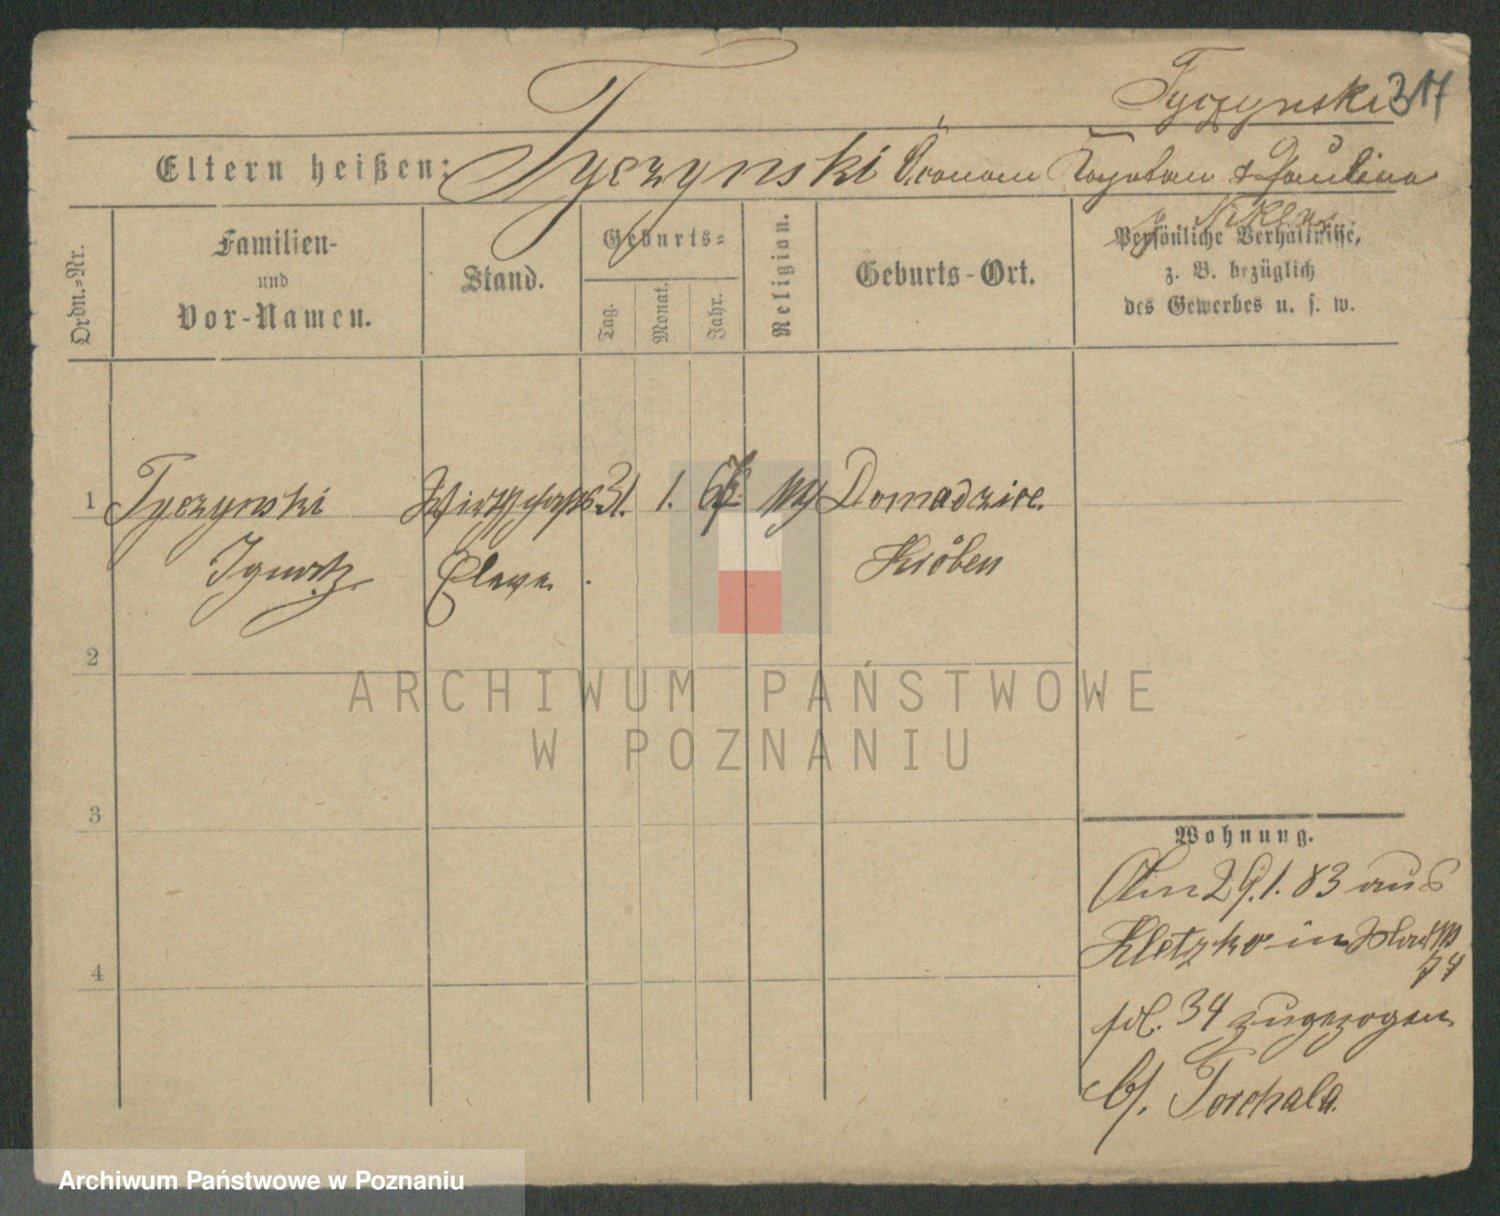 Tyczynski 317
Eltern heißen: Tyczynski Öconom Kajetan & Paulina
Ordn.-Nr.
Familien-
und
Vor-Namen.
Stand.
Geburts-
Tag.
Monat.
Jahr.
Religion.
Geburts-Ort.
Persönliche Verhältnisse,
z. B. bezüglich
des Gewerbes u. s. w.
1 Tyczynski Wirthschafts 31. 1. Domadzice.
Ignatz Eleve. Kröben
2
3
4
Wohnung.
Am 29.1.83 aus
Kletzko in
fol. 34 zugezogen
bf. Torchala.
ARCHIWUM PAŃSTWOWE
W POZNANIU
Archiwum Państwowe w Poznaniu